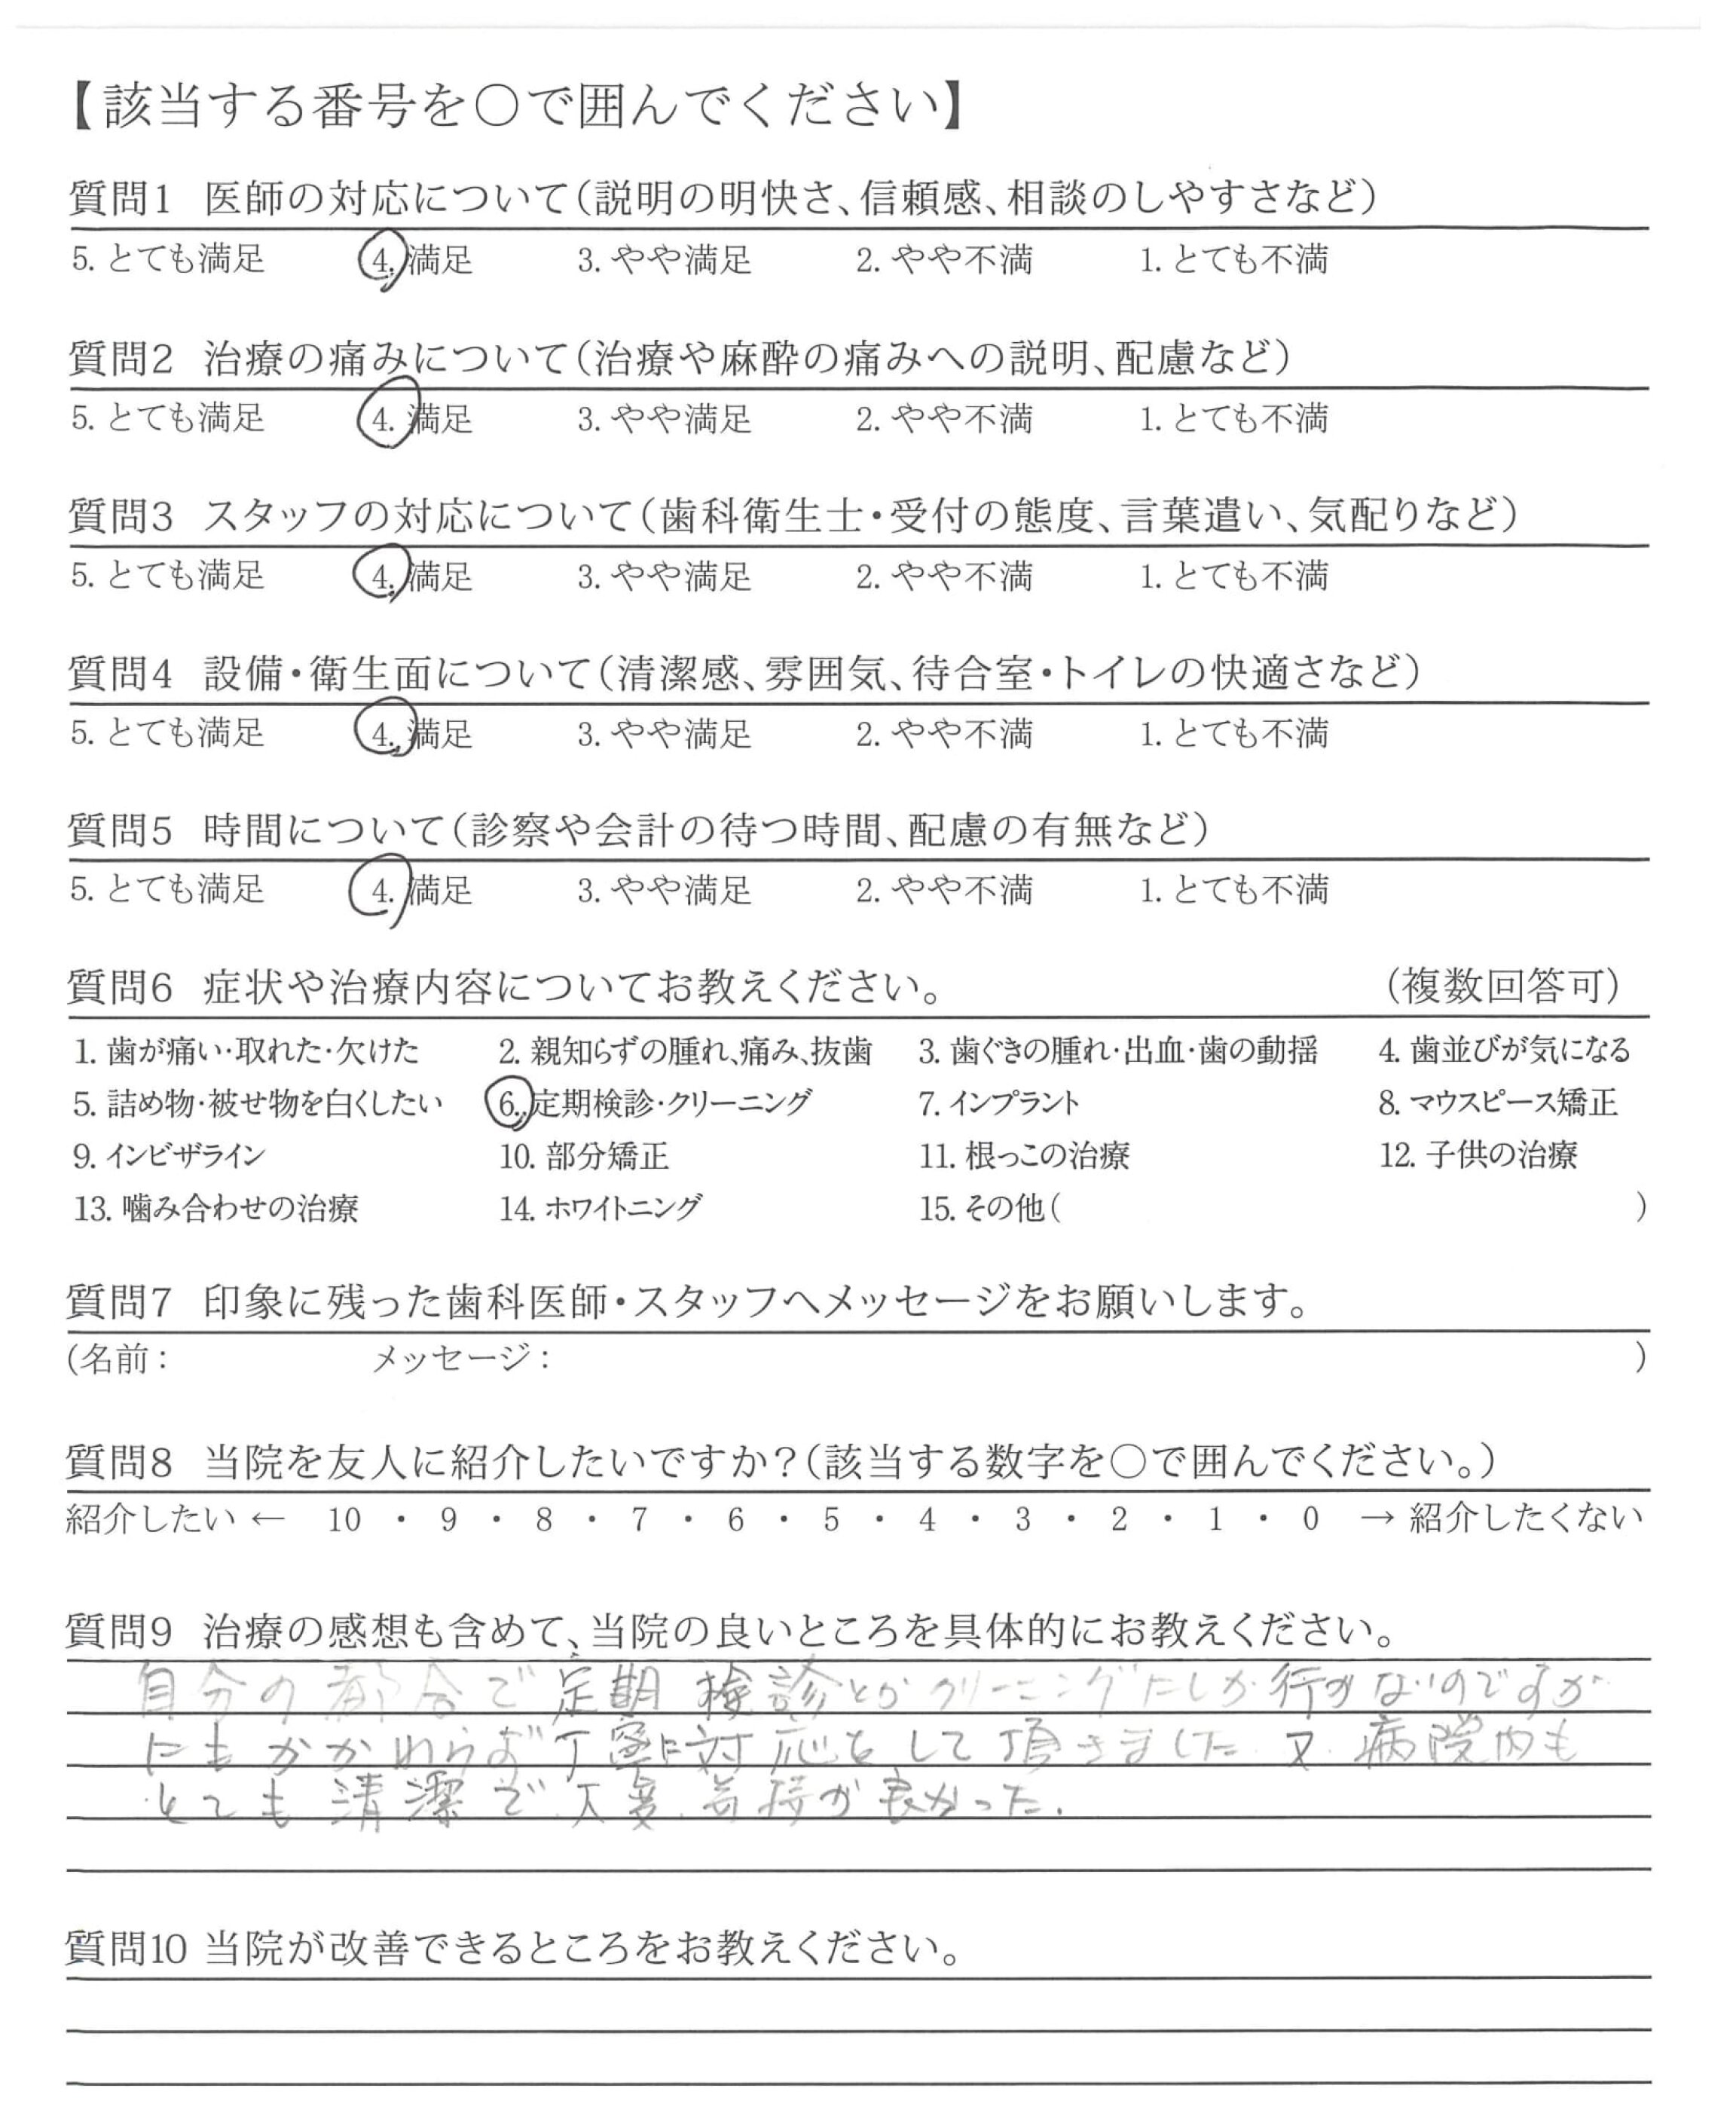 【該当する番号を○で囲んでください】
質問1 医師の対応について(説明の明快さ、信頼感、相談のしやすさなど)
5. とても満足 4. 満足 3. やや満足 2. やや不満 1. とても不満
質問2 治療の痛みについて(治療や麻酔の痛みへの説明、配慮など)
5. とても満足 4. 満足 3. やや満足 2. やや不満 1. とても不満
質問3 スタッフの対応について(歯科衛生士・受付の態度、言葉遣い、気配りなど)
5. とても満足 4. 満足 3. やや満足 2. やや不満 1. とても不満
質問4 設備・衛生面について(清潔感、雰囲気、待合室・トイレの快適さなど)
5. とても満足 4. 満足 3. やや満足 2. やや不満 1. とても不満
質問5 時間について(診察や会計の待つ時間、配慮の有無など)
5. とても満足 4. 満足 3. やや満足 2. やや不満 1. とても不満
質問6 症状や治療内容についてお教えください。 (複数回答可)
1. 歯が痛い・取れた・欠けた 2. 親知らずの腫れ、痛み、抜歯 3. 歯ぐきの腫れ・出血・歯の動揺 4. 歯並びが気になる
5. 詰め物・被せ物を白くしたい 6. 定期検診・クリーニング 7. インプラント 8. マウスピース矯正
9. インビザライン 10. 部分矯正 11. 根っこの治療 12. 子供の治療
13. 噛み合わせの治療 14. ホワイトニング 15. その他( )
質問7 印象に残った歯科医師・スタッフへメッセージをお願いします。
(名前: メッセージ: )
質問8 当院を友人に紹介したいですか?(該当する数字を○で囲んでください。)
紹介したい ← 10 ・ 9 ・ 8 ・ 7 ・ 6 ・ 5 ・ 4 ・ 3 ・ 2 ・ 1 ・ 0 → 紹介したくない
質問9 治療の感想も含めて、当院の良いところを具体的にお教えください。
自分の都合で定期検診とかクリーニングにしか行かないのですが
にもかかわらず丁寧に対応をして頂きました 又 病院内も
とても清潔で大変気持が良かった.
質問10 当院が改善できるところをお教えください。